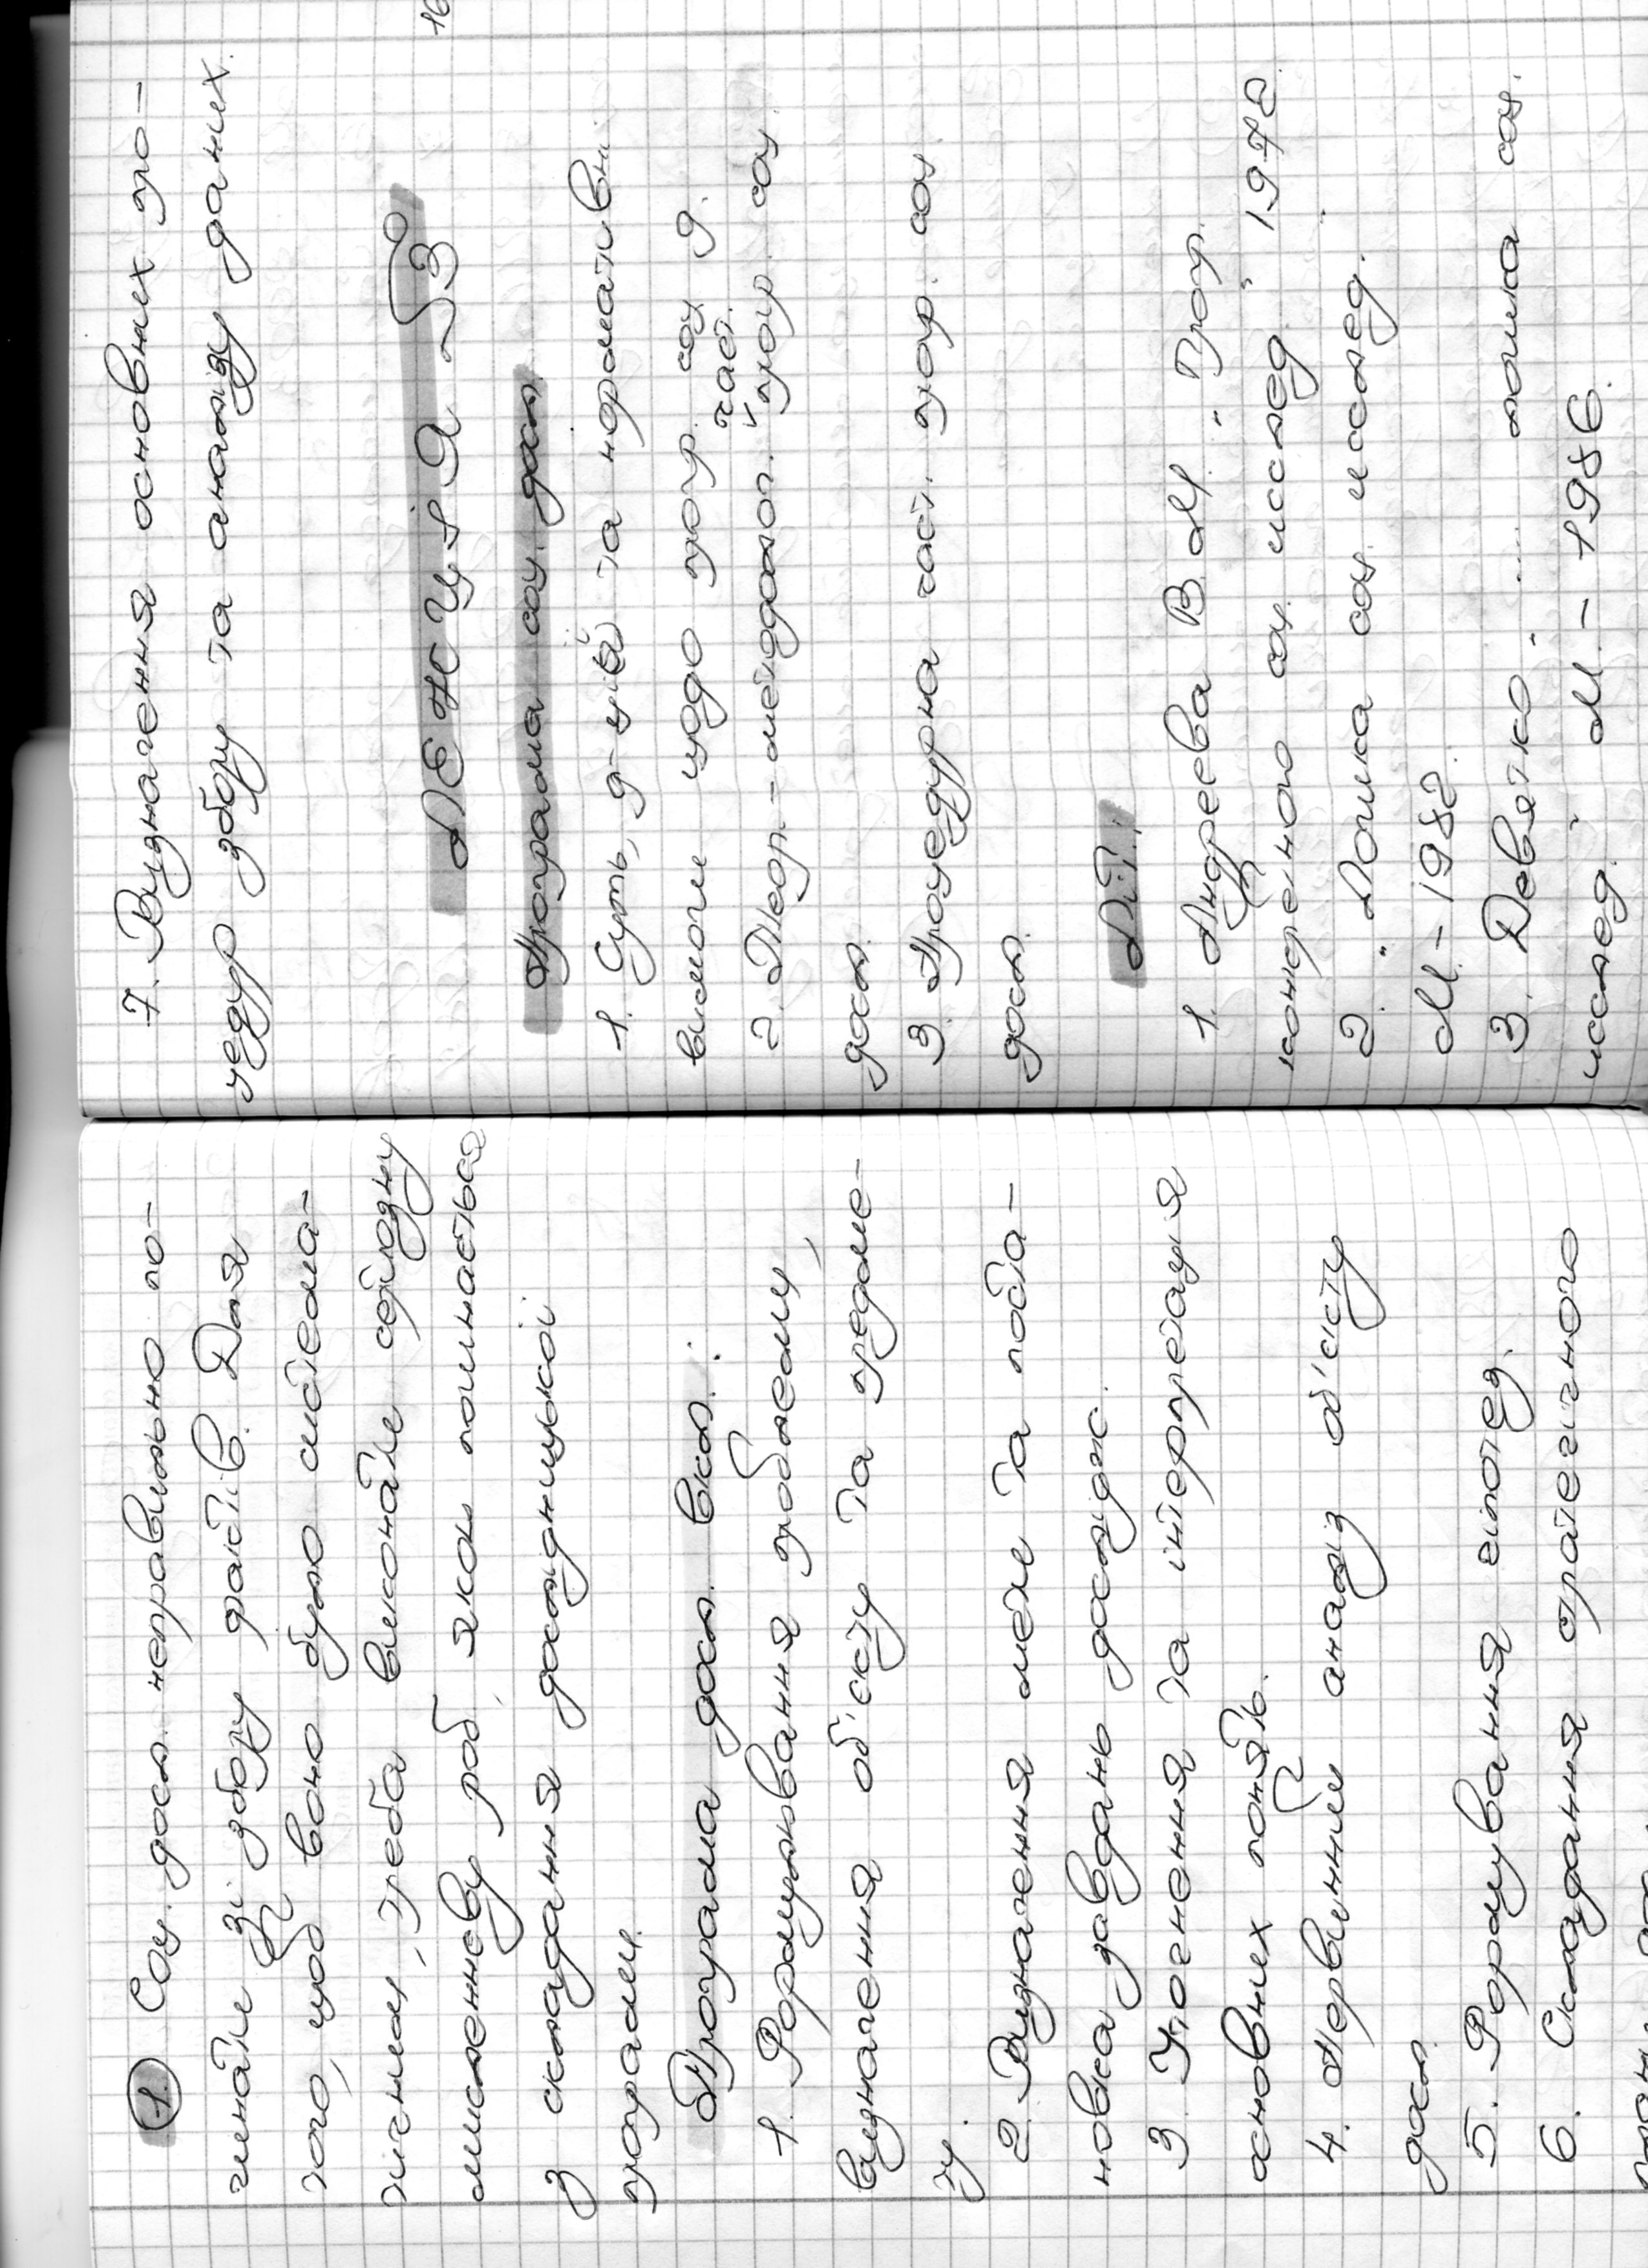 1. Соц. досл. неправильно по-
чинати зі збору фактів. Для
того, щоб воно було система-
тичним, треба виконати серйозну
мисленнєву роб, якои починається
з складання дослідницької
програми.
Програма досл. вкл.:
1. Формулювання проблеми,
визначення об'єкту та предме-
ту.
2. Визначення мети та поста-
новка завдань дослідж.
3. Уточнення та інтерпретація
основних понять.
4. Первинний аналіз об'єкту
досл.
5. Формування гіпотез.
6. Складання стратегічного
7. Визначення основних про-
цедур збору та аналізу даних.
ЛЕКЦІЯ №3
Програма соц. досл.
1. Суть, ф-ції та нормативні
вимоги щодо прогр. соц. д.
2. Теор.-методолог. част. прогр. соц.
досл.
3. Процедурна част. прогр. соц.
досл.
Літ.:
1. Андреева В.М. „Прогр.
конкретного соц. исслед.” 1972.
2. „Логика соц. исслед.”
М – 1982.
3. Девятко – „.... логика соц.
исслед.” М. – 1986.